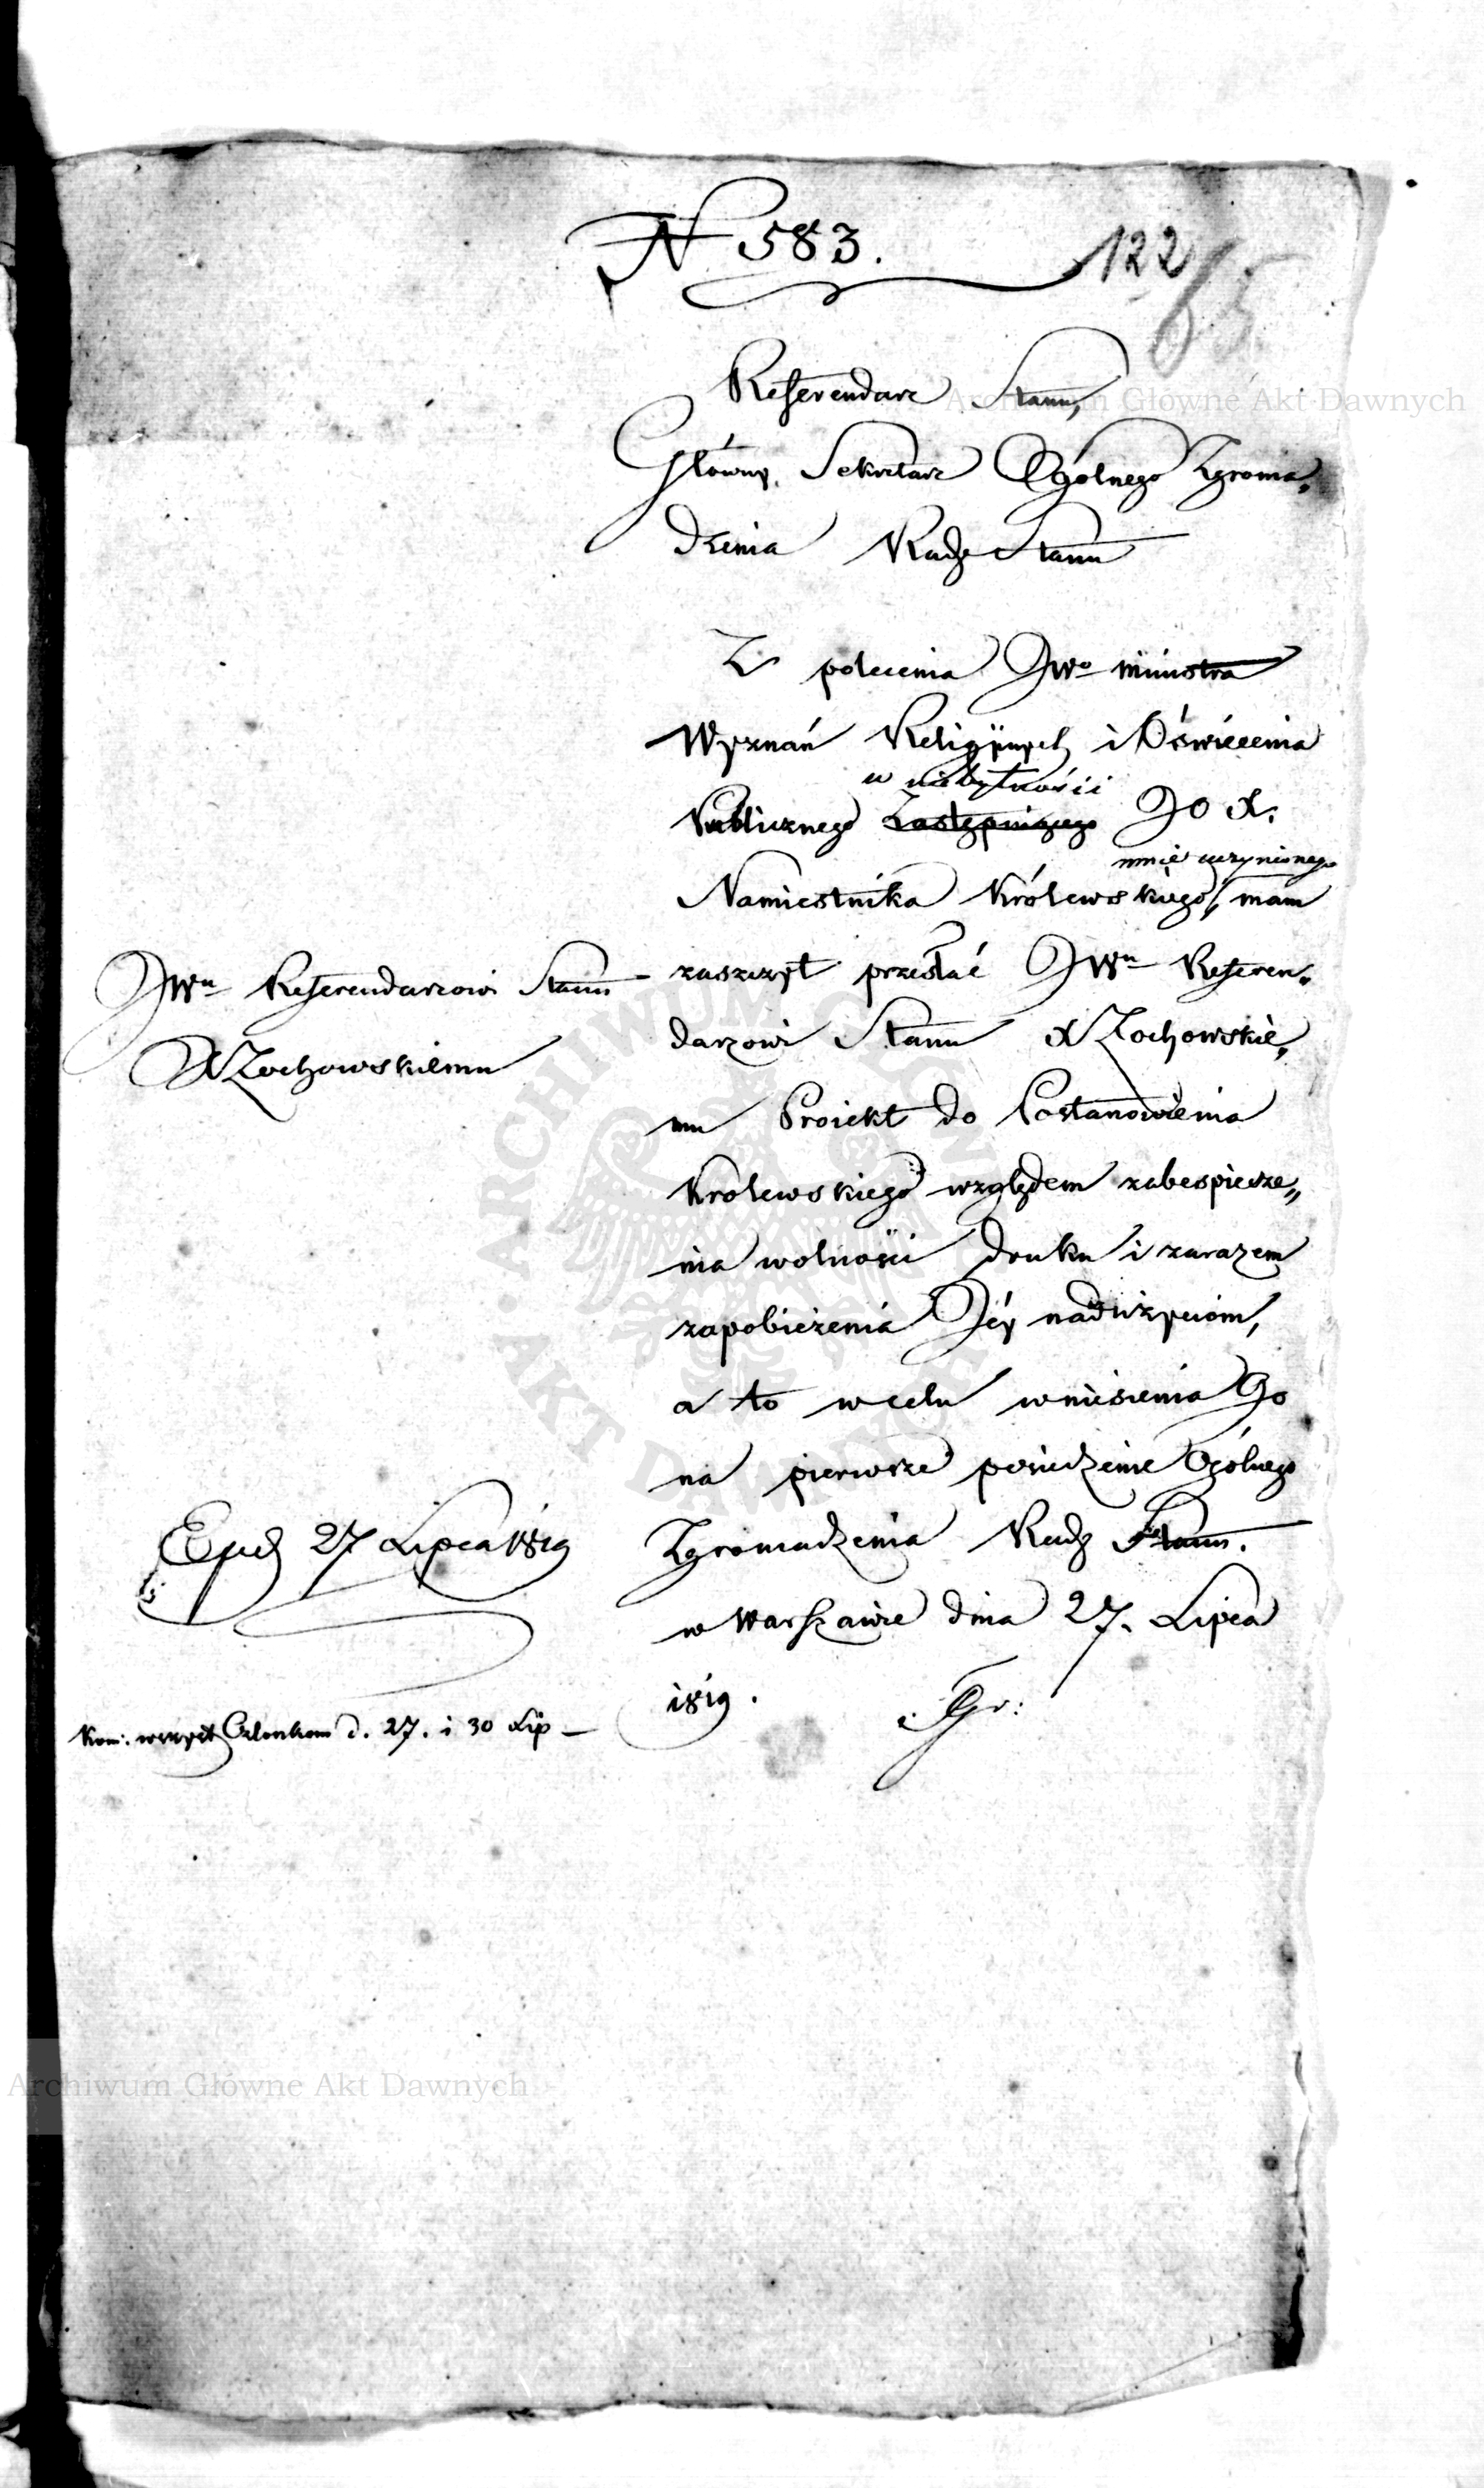 N 583.
122
65
Referendarz Stanu,
Główny Sekretarz Ogólnego Zgroma„
dzenia Rady Stanu
Z polecenia JWo Ministra
Wyznań Religiynych i Oświecenia
w niebytności
Publicznego Zastępuiącego JO X.
mnie uczynionego
Namiestnika Królewskiego, mam
zaszczyt przesłać JWu Referen„
darzowi Stanu X Zochowskie„
mu Proiekt do Postanowienia
Królewskiego względem zabespiecze„
nia wolności druku i zarazem
zapobieżenia Jéy nadużyciom,
a to w celu wniesienia Go
na pierwsze posiedzenie Ogólnego
Zgromadzenia Rady Stanu.
w Warszawie dnia 27. Lipca
1819.
JWu Referendarzowi Stanu
X Zochowskiemu
Exp 27 Lipca 1819
Kom: wszyst Członkom d. 27. i 30 Lip
Archiwum Główne Akt Dawnych
ARCHIWUM GŁÓWNE AKT DAWNYCH
Archiwum Główne Akt Dawnych